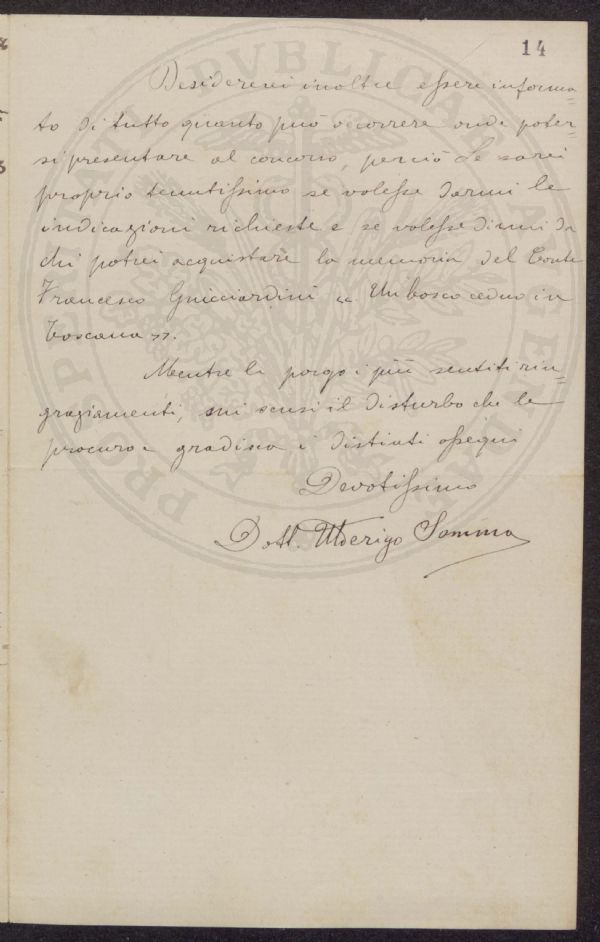 14
Desidererei inoltre essere informa=
to di tutto quanto può occorrere onde poter=
si presentare al concorso, perciò Le sarei
proprio tenutissimo se volesse darmi le
indicazioni richieste e se volesse dirmi da
chi potrei acquistare la memoria del Conte
Francesco Guicciardini « Un bosco ceduo in
Toscana ».
Mentre le porgo i più sentiti rin=
graziamenti, mi scusi il disturbo che le
procuro e gradisca i distinti ossequi
Devotissimo
Dott. Uderigo Somma
PROPRIETÀ PUBBLICA